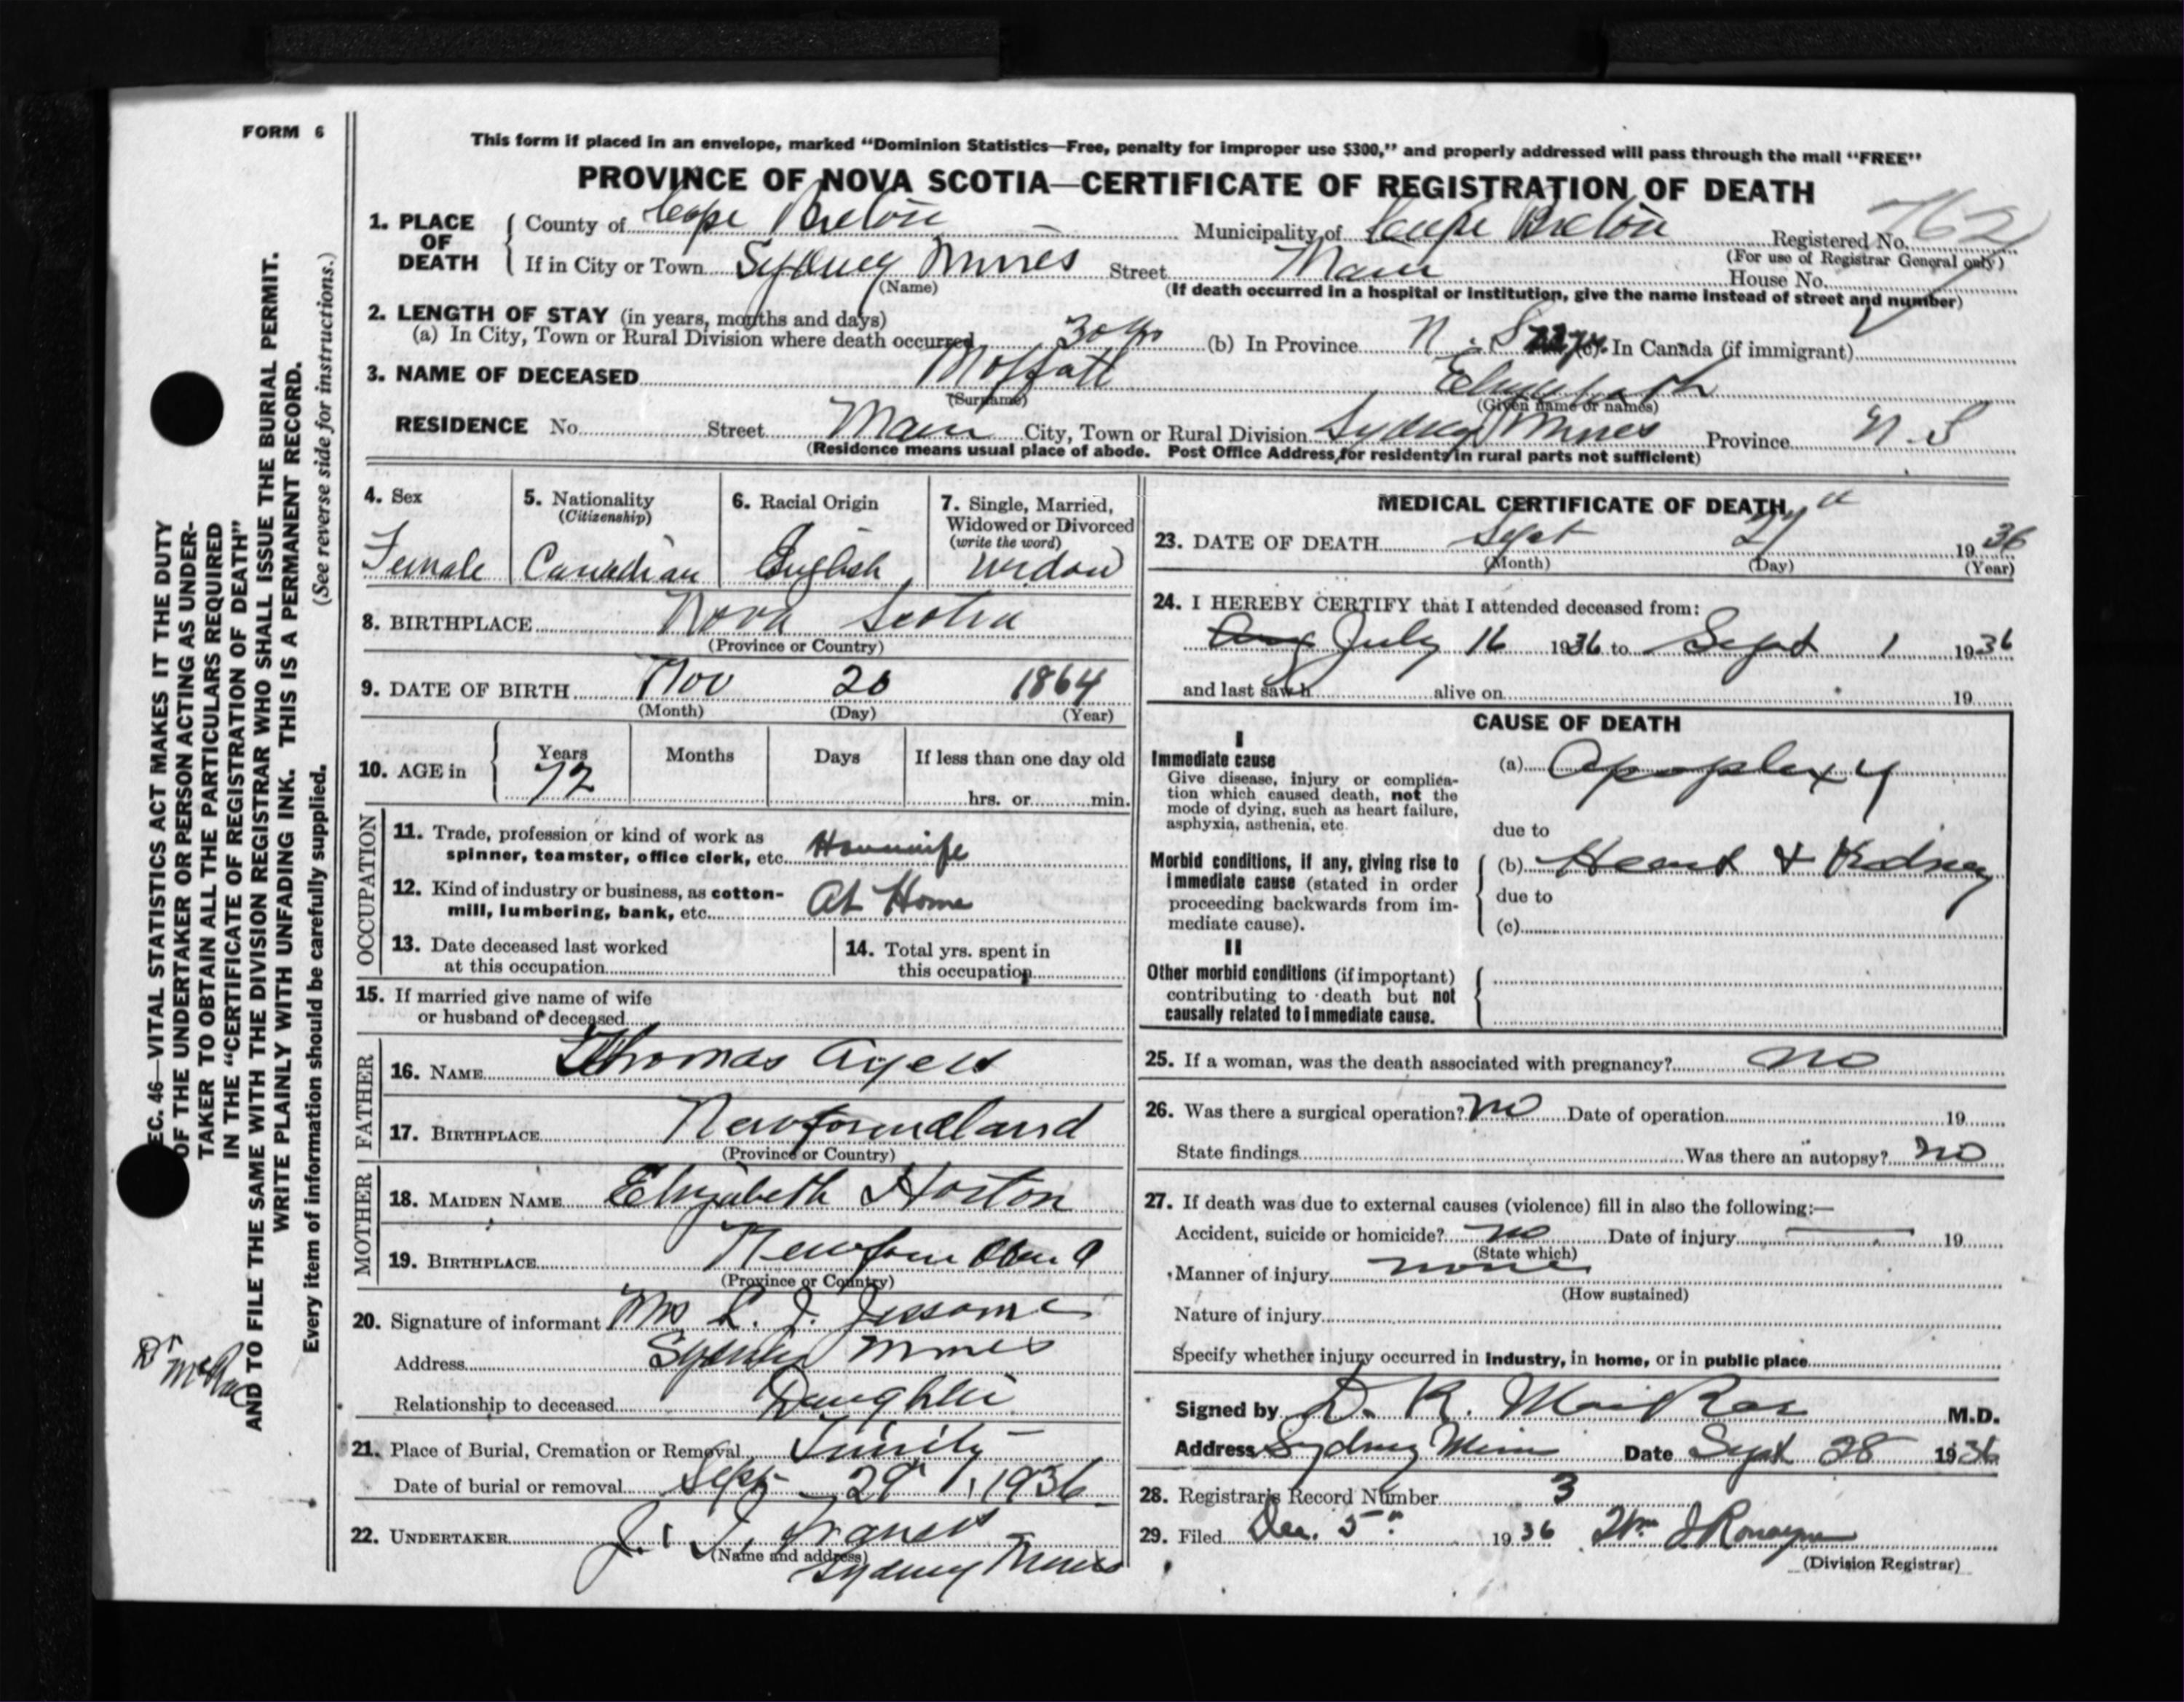 FORM 6
This form if placed in an envelope, marked “Dominion Statistics—Free, penalty for improper use $300,” and properly addressed will pass through the mail “FREE”
PROVINCE OF NOVA SCOTIA—CERTIFICATE OF REGISTRATION OF DEATH
1. PLACE OF DEATH
County of Cape Breton Municipality of Cape Breton Registered No. 762
(For use of Registrar General only)
If in City or Town Sydney Mines Street Main House No.
(Name) (If death occurred in a hospital or institution, give the name instead of street and number)
2. LENGTH OF STAY (in years, months and days)
(a) In City, Town or Rural Division where death occurred 30 yrs (b) In Province N.S. (c) In Canada (if immigrant)
3. NAME OF DECEASED Moffatt Elizabeth
(Surname) (Given name or names)
RESIDENCE No. Street Main City, Town or Rural Division Sydney Mines Province N.S
(Residence means usual place of abode. Post Office Address for residents in rural parts not sufficient)
4. Sex
Female
5. Nationality
(Citizenship)
Canadian
6. Racial Origin
English
7. Single, Married,
Widowed or Divorced
(write the word)
Widow
8. BIRTHPLACE Nova Scotia
(Province or Country)
9. DATE OF BIRTH Nov 20 1864
(Month) (Day) (Year)
10. AGE in
Years Months Days If less than one day old
72 hrs. or min.
OCCUPATION
11. Trade, profession or kind of work as
spinner, teamster, office clerk, etc. Housewife
12. Kind of industry or business, as cotton-
mill, lumbering, bank, etc. At Home
13. Date deceased last worked
at this occupation
14. Total yrs. spent in
this occupation
15. If married give name of wife
or husband of deceased
FATHER
16. NAME Thomas Ayers
17. BIRTHPLACE Newfoundland
(Province or Country)
MOTHER
18. MAIDEN NAME Elizabeth Horton
19. BIRTHPLACE Newfoundland
(Province or Country)
20. Signature of informant Mrs L. J. Jessome
Address Sydney Mines
Relationship to deceased Daughter
21. Place of Burial, Cremation or Removal Trinity
Date of burial or removal Sept 29 1936
22. UNDERTAKER J. T. Francis
(Name and address)
Sydney Mines
MEDICAL CERTIFICATE OF DEATH
23. DATE OF DEATH Sept 27 1936
(Month) (Day) (Year)
24. I HEREBY CERTIFY that I attended deceased from:
Aug July 16 1936 to Sept 1 1936
and last saw h alive on 19
CAUSE OF DEATH
I
Immediate cause
Give disease, injury or complica-
tion which caused death, not the
mode of dying, such as heart failure,
asphyxia, asthenia, etc.
(a) Apoplexy
due to
Morbid conditions, if any, giving rise to
immediate cause (stated in order
proceeding backwards from im-
mediate cause).
(b) Heart & Kidney
due to
(c)
II
Other morbid conditions (if important)
contributing to death but not
causally related to immediate cause.
25. If a woman, was the death associated with pregnancy? no
26. Was there a surgical operation? no Date of operation 19
State findings Was there an autopsy? no
27. If death was due to external causes (violence) fill in also the following:—
Accident, suicide or homicide? no Date of injury 19
(State which)
Manner of injury none
(How sustained)
Nature of injury
Specify whether injury occurred in industry, in home, or in public place
Signed by D. K. MacRae M.D.
Address Sydney Mines Date Sept 28 1936
28. Registrar's Record Number 3
29. Filed Dec. 5" 1936 Wm J Ronayne
(Division Registrar)
EC. 46—VITAL STATISTICS ACT MAKES IT THE DUTY
OF THE UNDERTAKER OR PERSON ACTING AS UNDER-
TAKER TO OBTAIN ALL THE PARTICULARS REQUIRED
IN THE “CERTIFICATE OF REGISTRATION OF DEATH”
AND TO FILE THE SAME WITH THE DIVISION REGISTRAR WHO SHALL ISSUE THE BURIAL PERMIT.
WRITE PLAINLY WITH UNFADING INK. THIS IS A PERMANENT RECORD.
Every item of information should be carefully supplied. (See reverse side for instructions.)
Dr McRae